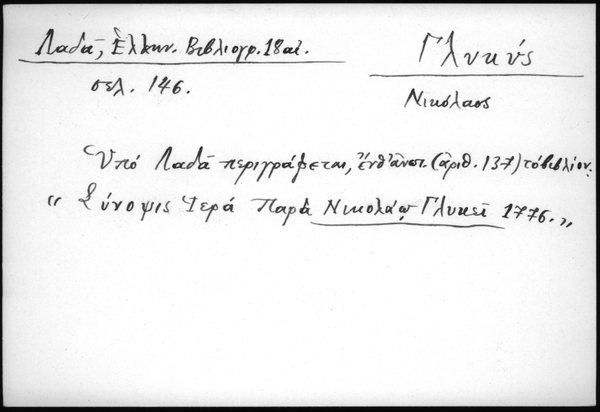 Λαδᾶ, Ἑλλην. Βιβλιογρ. 18 αἰ.
σελ. 146.
Γλυκύς
Νικόλαος
Ὑπό Λαδᾶ περιγράφεται, (ἀριθ. 137) τό βιβλίον:
"Σύνοψις Ἱερά Παρά Νικολάῳ Γλυκεῖ 1776."